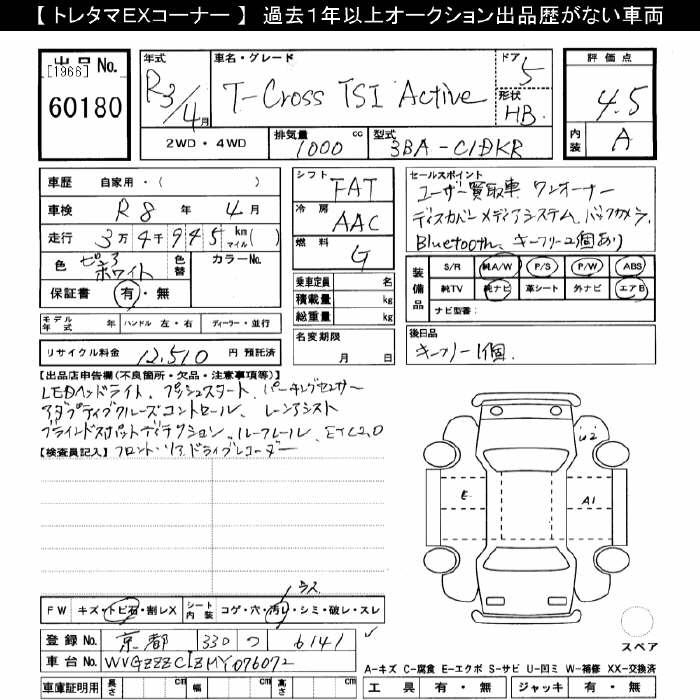 【 トレタマEXコーナー 】 過去１年以上オークション出品歴がない車両
出品 No.
[1966]
60180
年式
R3/4月
車名・グレード
T-Cross TSI Active
ドア
5
形状
HB
評価点
4.5
内装
A
2WD・4WD
排気量
1000 cc
型式
3BA-C1DKR
車歴 自家用・( )
車検 R8 年 4 月
走行 3万4千945 km マイル( )
色 ピュアホワイト
色替
カラーNo.
保証書 有・無
シフト FAT
冷房 AAC
燃料 G
乗車定員 名
積載量 kg
総重量 kg
セールスポイント
ユーザー買取車 ワンオーナー
ディスカバーメディアシステム、バックカメラ、
Bluetooth、キーフリー2個あり
装備品
S/R 純A/W P/S P/W ABS
純TV 純ナビ 革シート 外ナビ エアB
ナビ型番：
モデル年式 年 ハンドル 左・右 ディーラー・並行
名変期限
月 日
後日品
キーフリー1個.
リサイクル料金 12,510 円 預託済
【出品店申告欄(不良箇所・欠品・注意事項等)】
LEDヘッドライト、プッシュスタート、パーキングセンサー
アダプティブクルーズコントロール、レーンアシスト
ブラインドスポットディテクション、ルーフレール、ETC2.0
【検査員記入】 フロント・リアドライブレコーダー
U2
E
A1
スペア
FW キズ・トビ石・割レX
シート内装 コゲ・穴・汚レ・シミ・破レ・スレ
ウス
登録 No. 京都 330 つ 6141
車台 No. WVGZZZC1ZMY076072
車庫証明用 長さ cm 幅 cm 高さ cm
A-キズ C-腐食 E-エクボ S-サビ U-凹ミ W-補修 XX-交換済
工具 有・無 ジャッキ 有・無